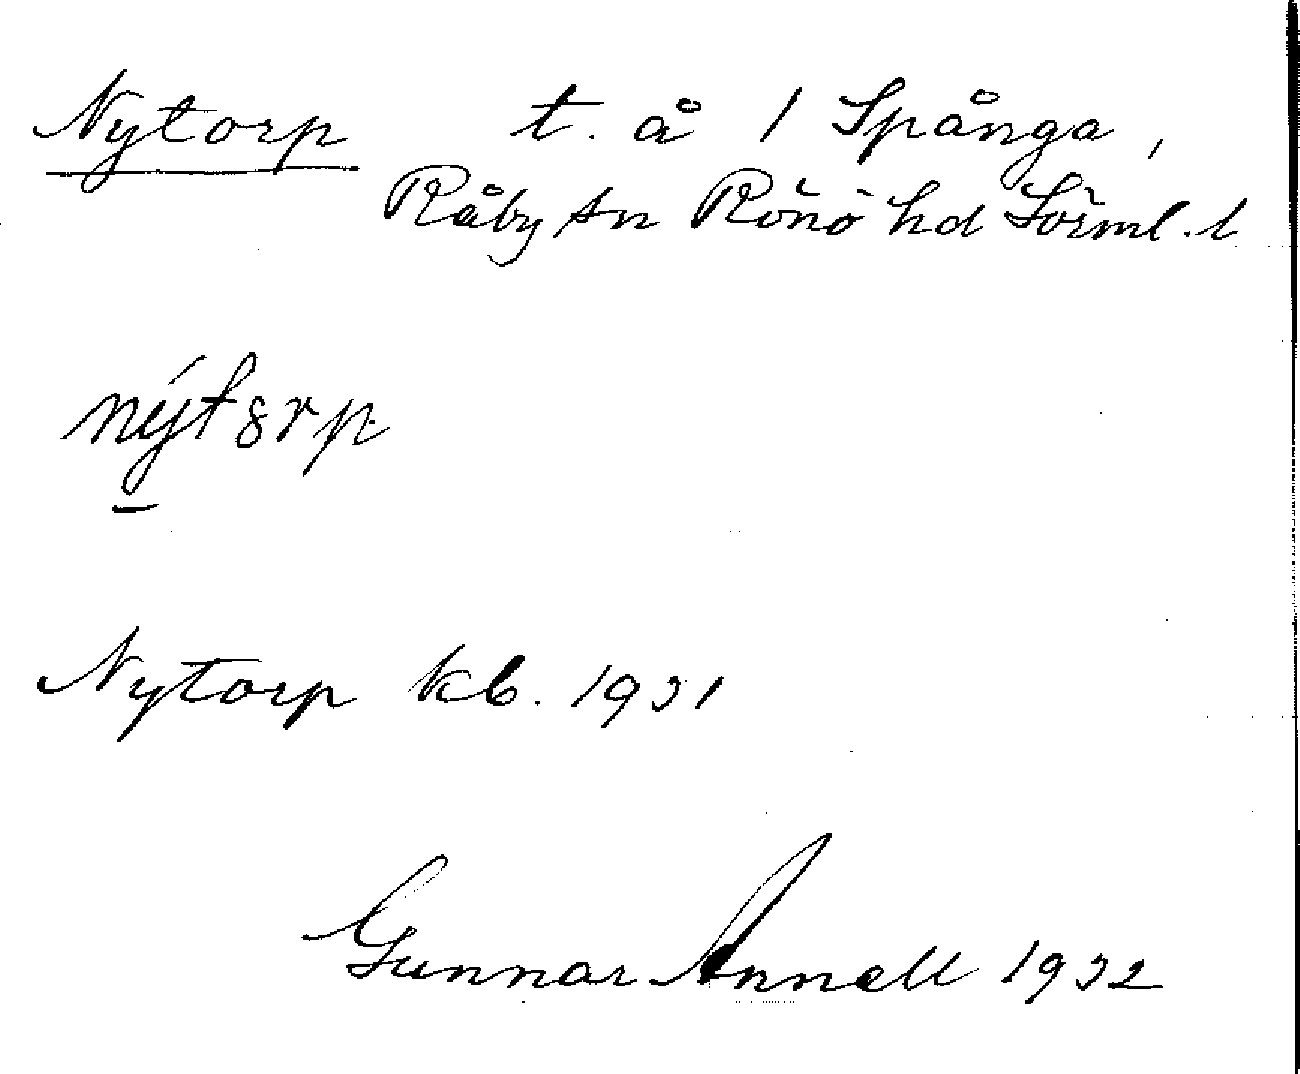 Nytorp t. å 1 Spånga,
Råby sn Rönö hd Sörml. l
nýtȣrp
Nytorp kb. 1931
Gunnar Annell 1932